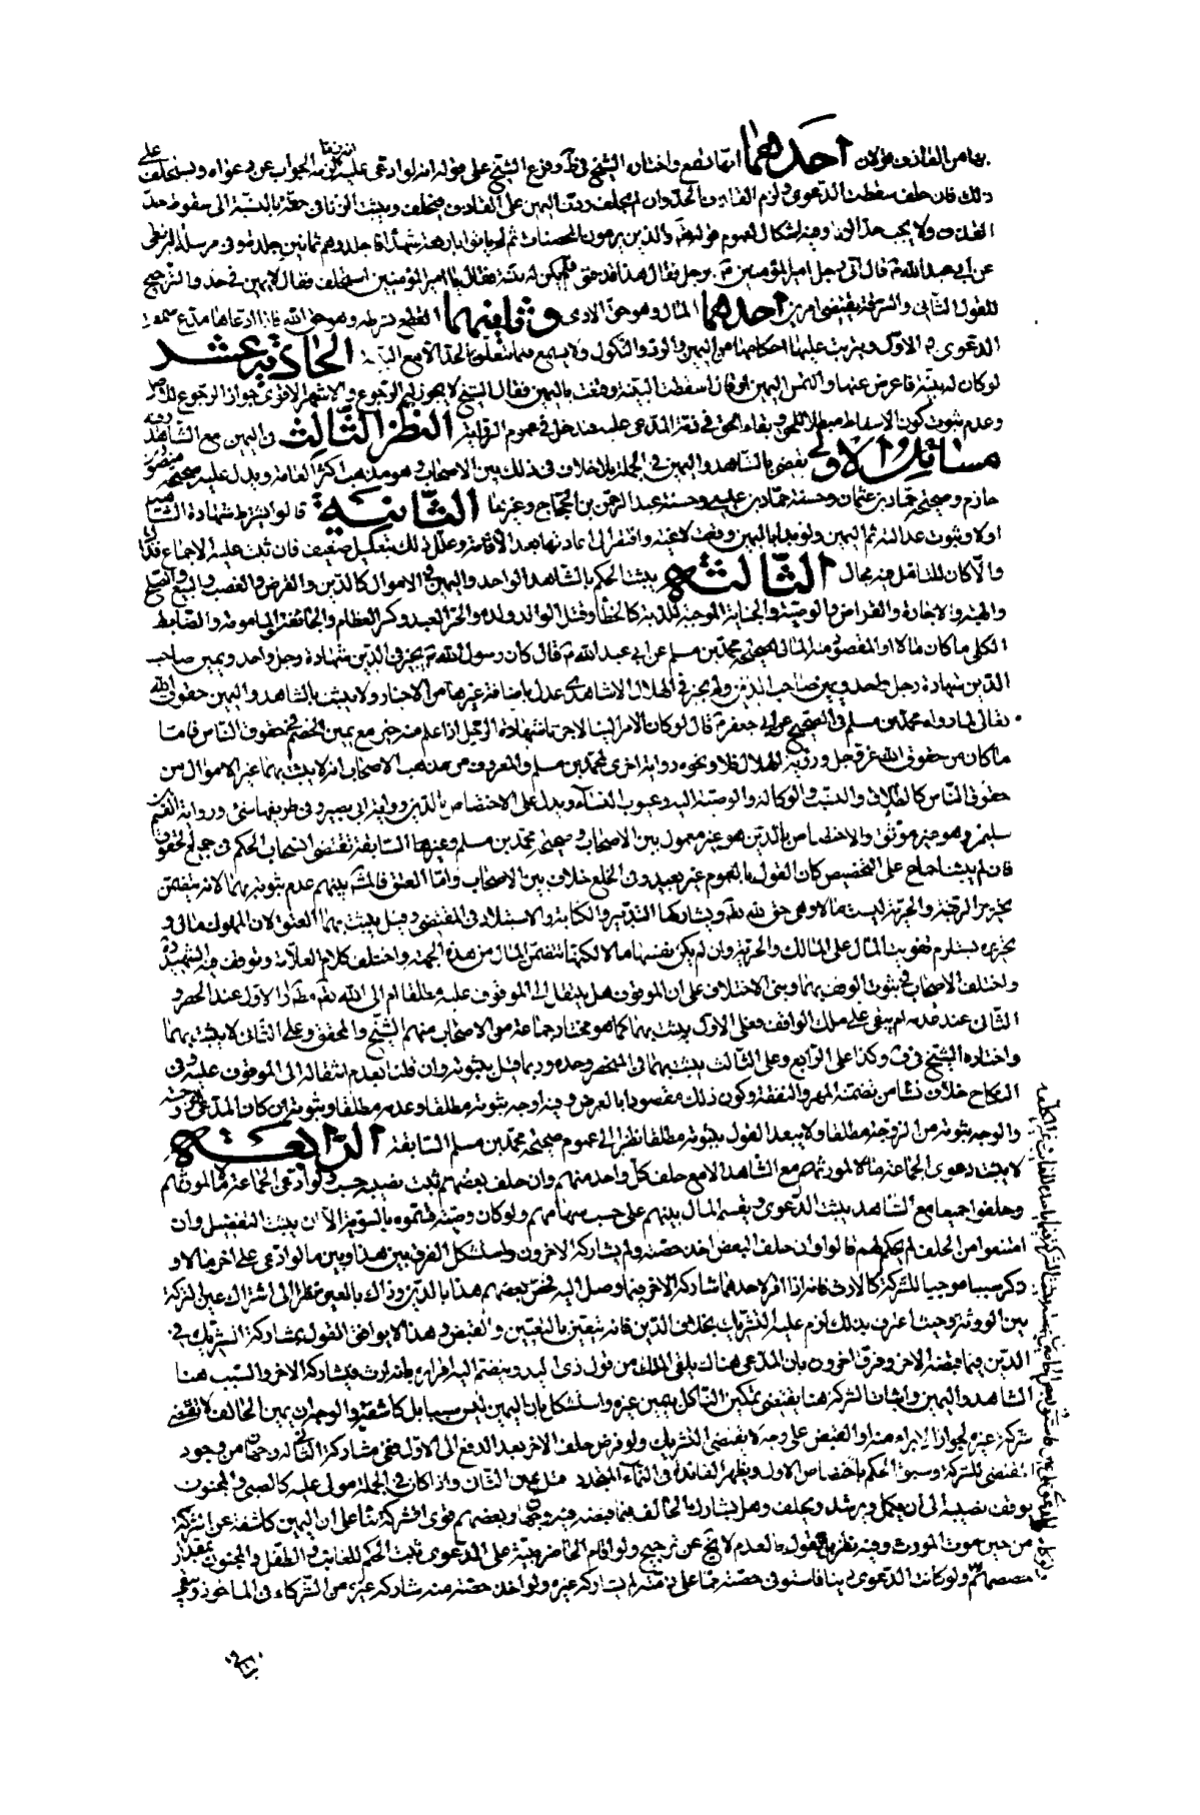 بها من القاذف قولان احدهما انها تقطع واختاره الشيخ في ط وفرع الشيخ على قوله انه لو ادعى عليه انه زنا لزمه الجواب عن دعواه ويستحلف على
ذلك فان حلف سقطت الدعوى ولزم القاذف الحد وان لم يحلف ردت اليمين على القاذف فيحلف ويثبت الزنا في حقه بالنسبة الى سقوط حد
القذف ولا يجب حد الزنا وفيه اشكال لعموم قوله تعالى والذين يرمون المحصنات ثم لم ياتوا باربعة شهداء فاجلدوهم ثمانين جلدة وفي مرسلة البزنطي
عن ابي عبد الله ع قال اتى رجل امير المؤمنين ع برجل فقال هذا قذفني ولم يكن له بينة فقال يا امير المؤمنين استحلفه فقال لا يمين في حد والترجيح
للقول الثاني والسرقة يقتضي امرين احدهما المال وهو حق الادمي وثانيهما القطع بشرطه وهو حق الله فاذا ادعاها مدع سمعت
الدعوى في الاول ويترتب عليها احكامها من اليمين والرد والنكول ولا يسمع فيما يتعلق بالحد الا مع البينة الحادية عشر
لو كان له بينة فاعرض عنها والتمس اليمين او قال اسقطت البينة وقنعت باليمين فقال الشيخ لا يجوز له الرجوع والاشهر الاقوى جواز الرجوع للاصل
وعدم ثبوت كون الاسقاط مبطلا للحق وبقاء الحق في ذمة المدعى عليه فيدخل في عموم الرواية النظر الثالث في اليمين مع الشاهد وفيه
مسائل الاولى يقضى بالشاهد واليمين في الجملة بلا خلاف في ذلك بين الاصحاب وهو مذهب اكثر العامة ويدل عليه صحيحة منصور
حازم وصحيحة حماد بن عثمان وحسنة حماد بن عيسى وحسنة عبد الرحمن بن الحجاج وغيرها الثانية قالوا يشترط شهادة الشاهد
اولا وثبوت عدالته ثم اليمين ولو بدا باليمين وقعت لاغية وافتقر الى اعادتها بعد الاقامة وعلل ذلك بتعليل ضعيف فان ثبت عليه الاجماع فذاك
والا كان للتامل فيه مجال الثالثة يثبت الحكم بالشاهد الواحد واليمين في الاموال كالدين والقرض والغصب والبيع والصلح
والهبة والاجارة والقراض والوصية والجناية الموجبة للدية كالخطأ وقتل الوالد ولده والحر العبد وكسر العظام والجائفة والمامومة والضابط
الكلي ما كان مالا او المقصود منه المال لصحيحة محمد بن مسلم عن ابي عبد الله ع قال كان رسول الله ص يجيز في الدين شهادة رجل واحد ويمين صاحب
الدين شهادة رجل واحد ويمين صاحب الدين ولم يجز في الهلال الا شاهدي عدل باضافة غيرها من الاخبار ولا يثبت بالشاهد واليمين حقوق الله
تعالى لما رواه محمد بن مسلم في الصحيح عن ابي جعفر ع قال لو كان الامر الينا لاجزنا شهادة الرجل اذا علم منه خير مع يمين الخصم في حقوق الناس فاما
ما كان من حقوق الله عز وجل ورؤية الهلال فلا ونحوه رواية اخرى لمحمد بن مسلم والمعروف من مذهب الاصحاب انه لا يثبت بهما غير الاموال من
حقوق الناس كالطلاق والنسب والوكالة والوصية اليه وعيوب النساء ويدل على الاختصاص بالدين رواية ابي بصير وفي طريقها شيء ورواية القسم بن
سليمن وهو غير موثق والاختصاص بالدين هو غير معمول بين الاصحاب وصحيحة محمد بن مسلم وغيرها السابقة تقتضي انسحاب الحكم في جميع الحقوق
فان لم يثبت اجماع على التخصيص كان القول بالعموم غير بعيد وفي الخلع خلاف بين الاصحاب واما العتق فالمشهور بينهم عدم ثبوته بهما لانه يتضمن
تحرير الرقبة والحرية ليست مالا وهي حق لله تعالى ويشاركها التدبير والكتابة والاستيلاد في المقتضي وقيل يثبت بهما العتق لان المملوك مال و
تحريره يستلزم تفويت المال على المالك والحرية وان لم يكن نفسها مالا لكنها تتضمن المال من هذه الجهة واختلف كلام العلامة وتوقف فيه الشهيد ره
واختلف الاصحاب في ثبوت الوقف بهما وبني الاختلاف على ان الموقوف هل ينتقل الى الموقوف عليه مطلقا ام الى الله تعالى مطلقا ام الاول عند الحصر و
الثاني عند عدمه ام يبقى على ملك الواقف فعلى الاول يثبت بهما كما هو مختار جماعة من الاصحاب منهم الشيخ والمحقق وعلى الثاني لا يثبت بهما
واختاره الشيخ في ف وكذا على الرابع وعلى الثالث يثبت بهما في المنحصر وحده وربما قيل بثبوته وان قلنا بعدم انتقاله الى الموقوف عليه وفي
النكاح خلاف نشأ من تضمنه المهر والنفقة وكون ذلك مقصودا بالعرض وفيه اوجه ثبوته مطلقا وعدمه مطلقا وثبوته ان كان المدعي الزوجة
والوجه ثبوته من الزوجة مطلقا ولا يبعد القول بثبوته مطلقا نظرا الى عموم صحيحة محمد بن مسلم السابقة الرابعة
لا يثبت دعوى الجماعة مالا لمورثهم مع الشاهد الا مع حلف كل واحد منهم وان حلف بعضهم ثبت نصيبه حسب ولو ادعى الجماعة مالا لمورثهم
وحلفوا جميعا مع الشاهد يثبت الدعوى ويقسم المال بينهم على حسب سهامهم ولو كان وصية قسموه بالسوية الا ان يثبت التفضيل وان
امتنعوا من الحلف لم يحكم لهم قالوا وان حلف البعض اخذ حصته ولم يشاركه الاخرون واستشكل الفرق بين هذا وبين ما لو ادعى على اخر مالا و
ذكر سببا موجبا للشركة كالارث فانه اذا اقر لاحدهما شاركه الاخر فيما وصل اليه فخص بعضهم هذا بالدين وذاك بالعين نظرا الى اشتراك عين التركة
بين الورثة وحيث اعترف بذلك لزم عليه التشريك بخلاف الدين فانه يتعين بالتعيين والقبض وهذا لا يوافق القول بمشاركة الشريك في
الدين فيما قبضه الاخر وفرق اخرون بان المدعي هناك يلقى الملك من قول ذي اليد وينضم اليه اقراره بانه ارث فيشاركه الاخر والسبب هنا
الشاهد واليمين واثبات الشركة هنا يقتضي تمكين الناكل بيمين غيره واستشكل بان اليمين ليس سببا بل كاشفة والوجه ان يمين الحالف لا يقتضي
شركة غيره لجواز الابراء منه او القبض على وجه لا يقتضي التشريك ولو فرض حلف الاخر بعد الدفع الى الاول ففي مشاركة الثاني له وجهان من وجود
المقتضي للشركة وسبق الحكم باختصاص الاول ويظهر الفائدة في النماء المتجدد قبل يمين الثاني واذا كان في الجملة مولى عليه كالصبي والمجنون
يوقف نصيبه الى ان يكمل ويرشد ويحلف وهل يشارك الحالف فيما قبضه فيه وجهان وبعضهم قوى الشركة بناء على ان اليمين كاشفة عن الشركة
من حين موت المورث وفيه نظر والقول بالعدم لا يخ عن ترجيح ولو اقام الحاضر بينة على الدعوى ثبت الحكم للغائب والطفل والمجنون بمقدار
حصصهم ولو كانت الدعوى دينا فاستوفى حصته مما على ذمته لم يشاركه غيره ولو اخذ حصته منه شاركه غيره من الشركاء في الماخوذ وبقي